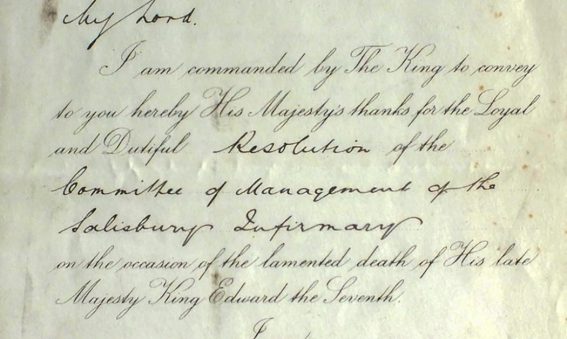 My Lord.
I am commanded by The King to convey
to you hereby His Majesty's thanks for the Loyal
and Dutiful Resolution of the
Committee of Management of the
Salisbury Infirmary
on the occasion of the lamented death of His late
Majesty King Edward the Seventh.
I